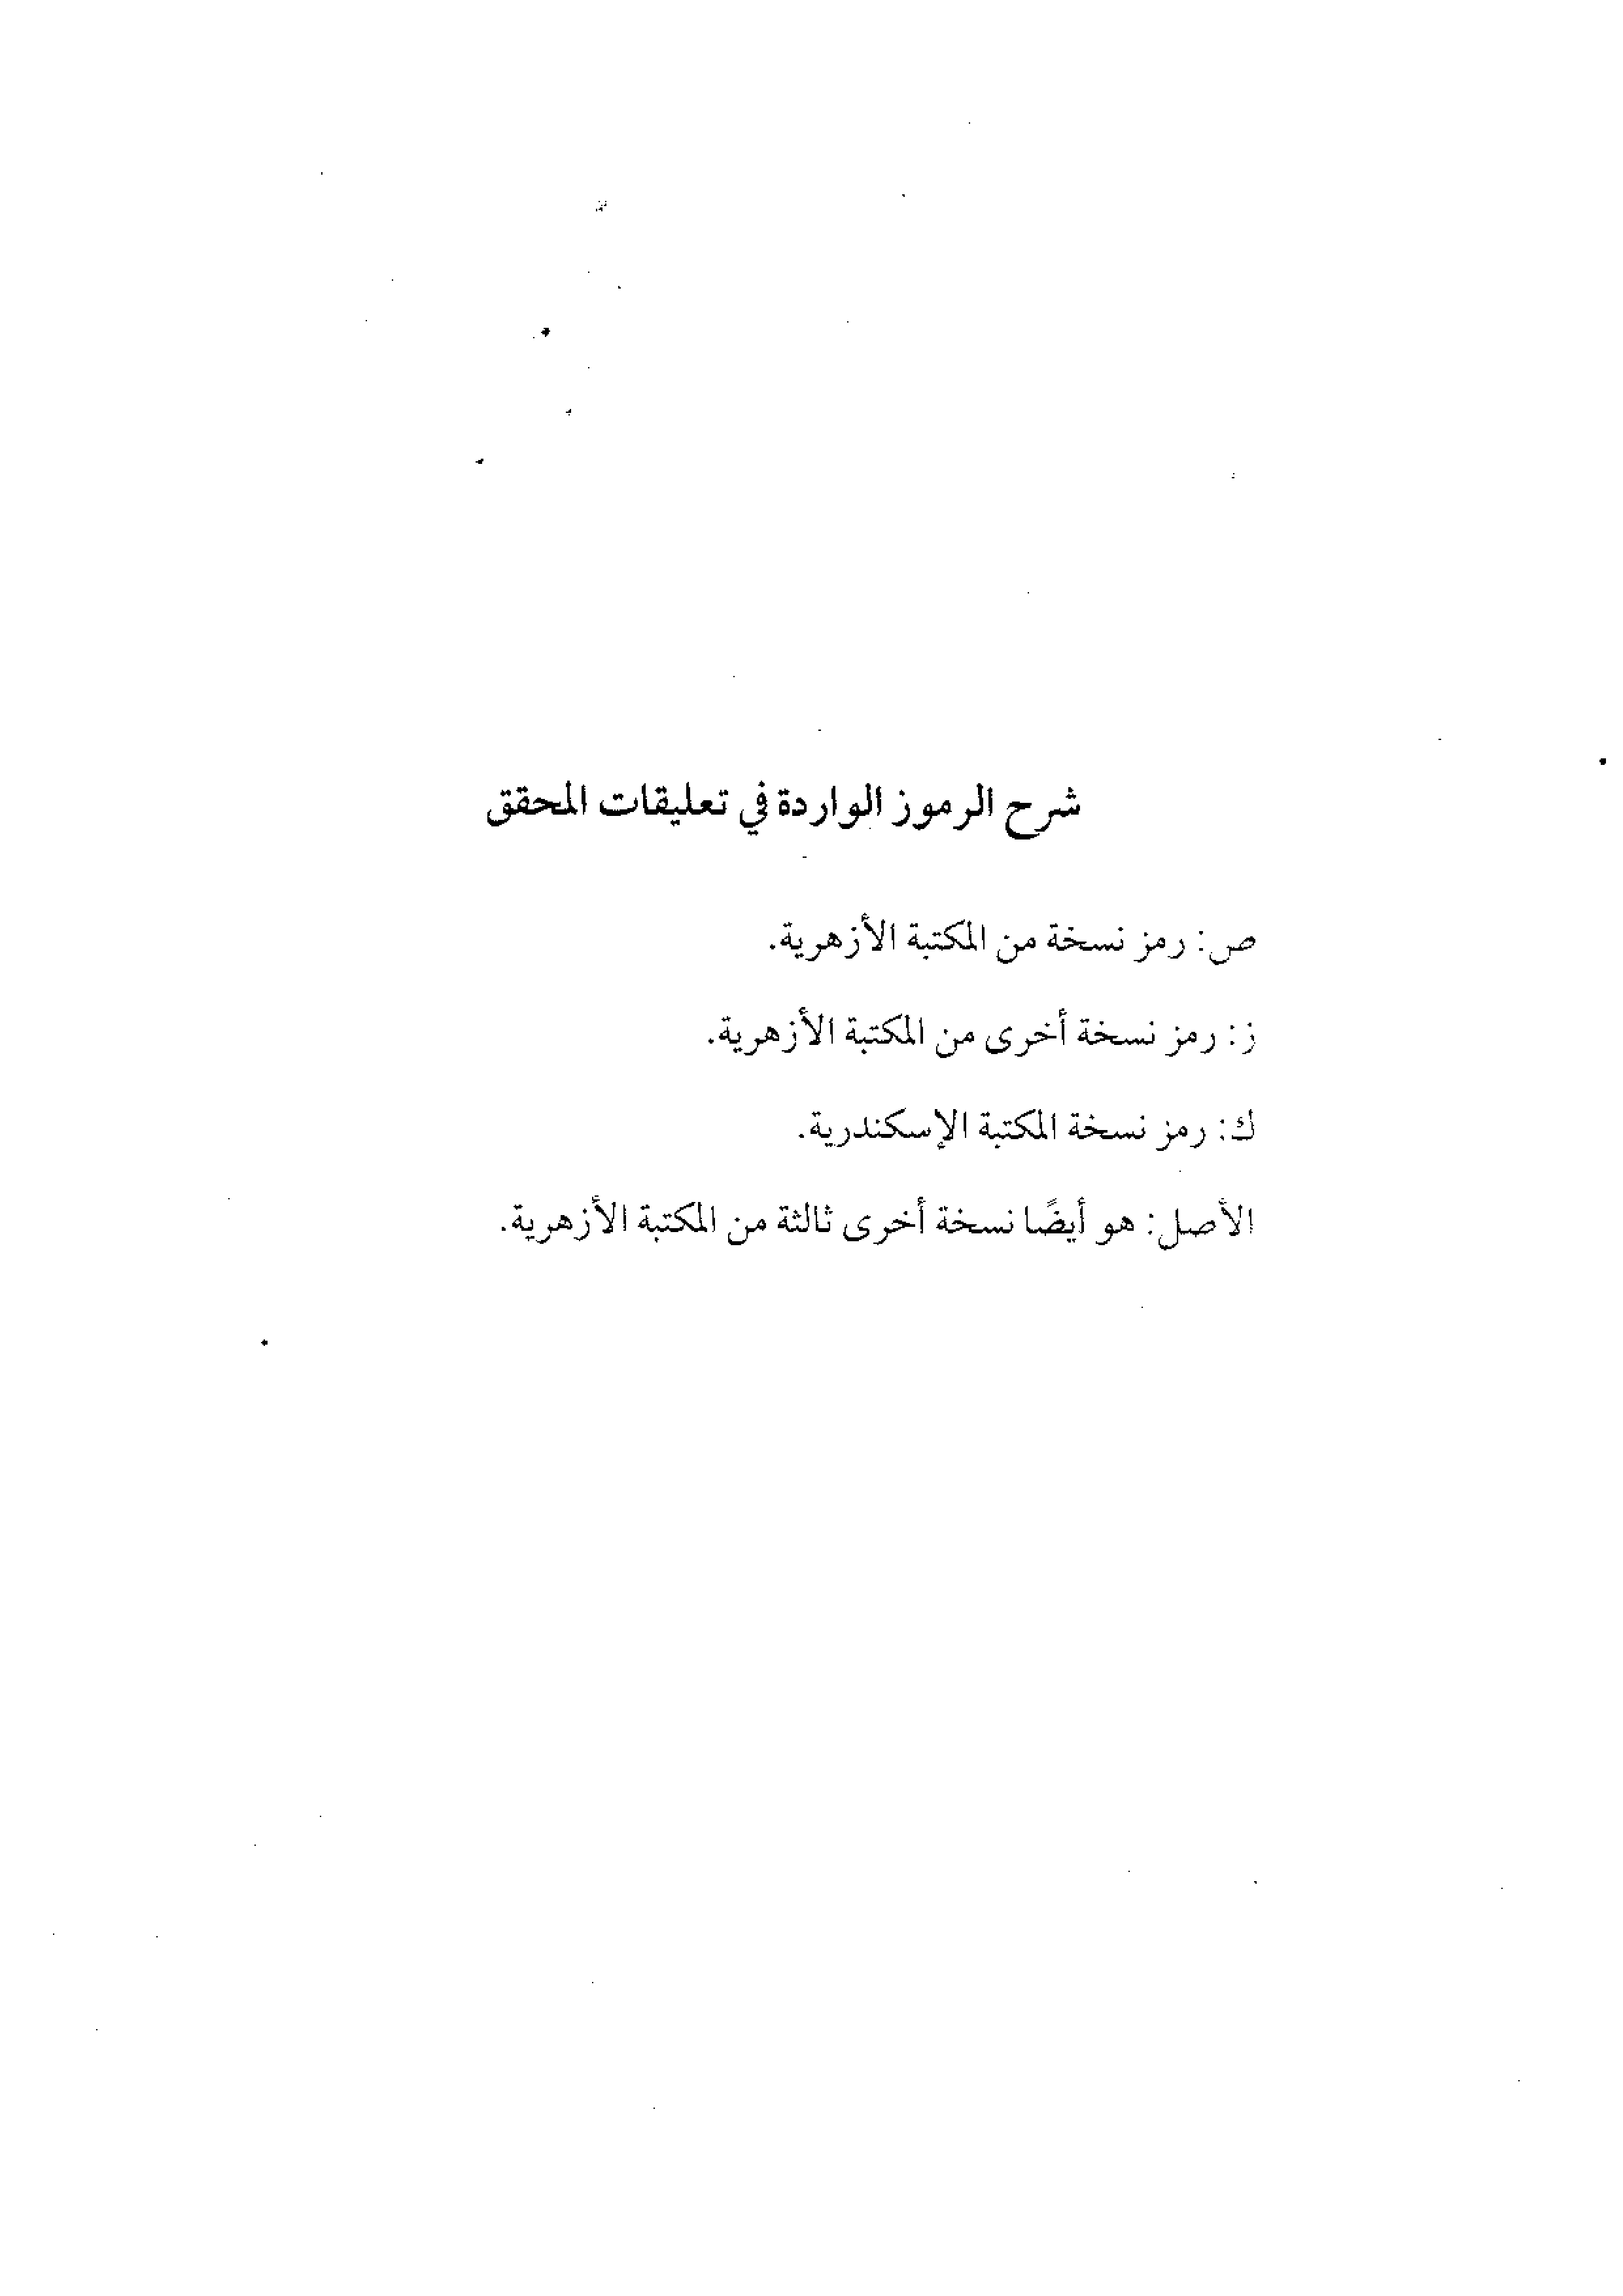 شرح الرموز الواردة في تعليقات المحقق
ص: رمز نسخة من المكتبة الأزهرية.
ز: رمز نسخة أخرى من المكتبة الأزهرية.
ك: رمز نسخة المكتبة الإسكندرية.
الأصل: هو أيضًا نسخة أخرى ثالثة من المكتبة الأزهرية.